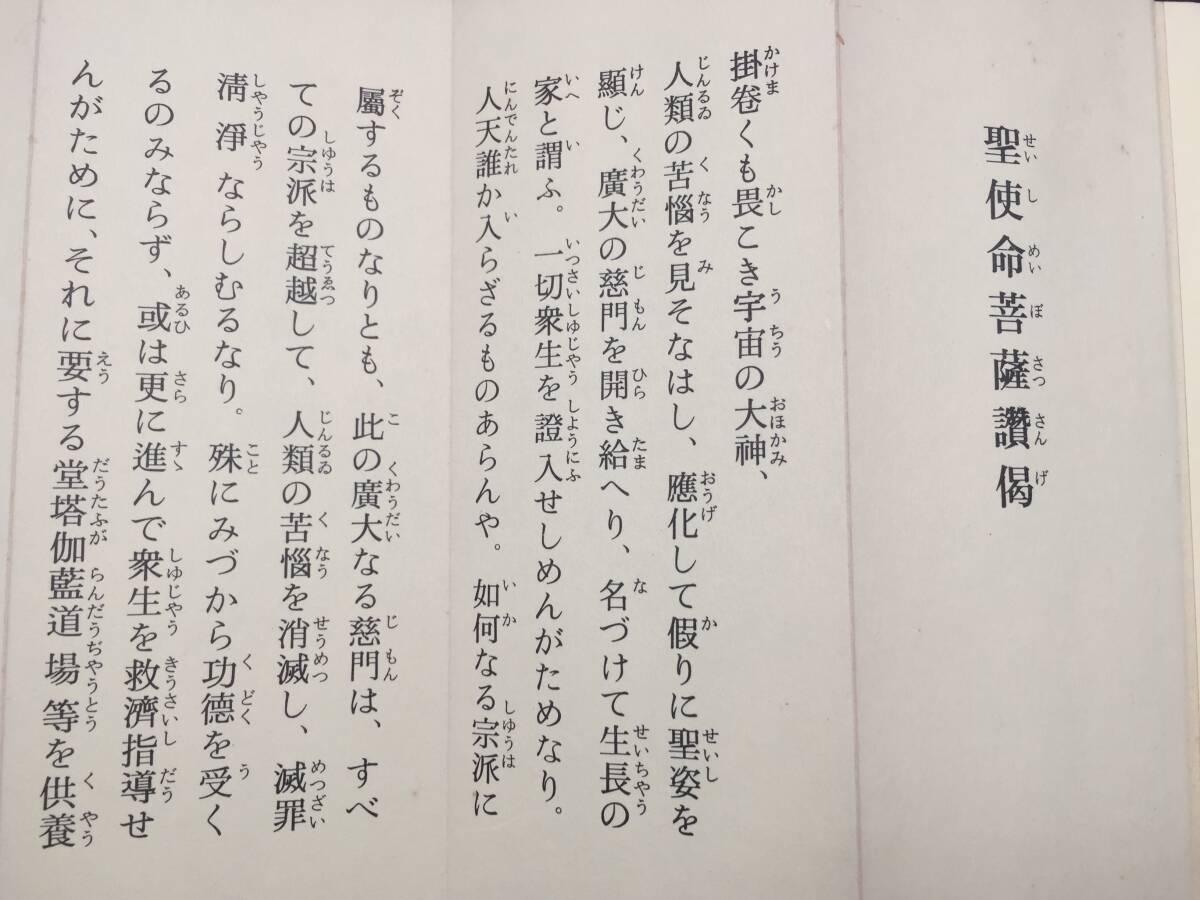 聖使命菩薩讚偈
掛卷くも畏こき宇宙の大神、
人類の苦惱を見そなはし、應化して假りに聖姿を
顯じ、廣大の慈門を開き給へり、名づけて生長の
家と謂ふ。一切衆生を證入せしめんがためなり。
人天誰か入らざるものあらんや。如何なる宗派に
屬するものなりとも、此の廣大なる慈門は、すべ
ての宗派を超越して、人類の苦惱を消滅し、滅罪
淸淨ならしむるなり。殊にみづから功德を受く
るのみならず、或は更に進んで衆生を救濟指導せ
んがために、それに要する堂塔伽藍道場等を供養